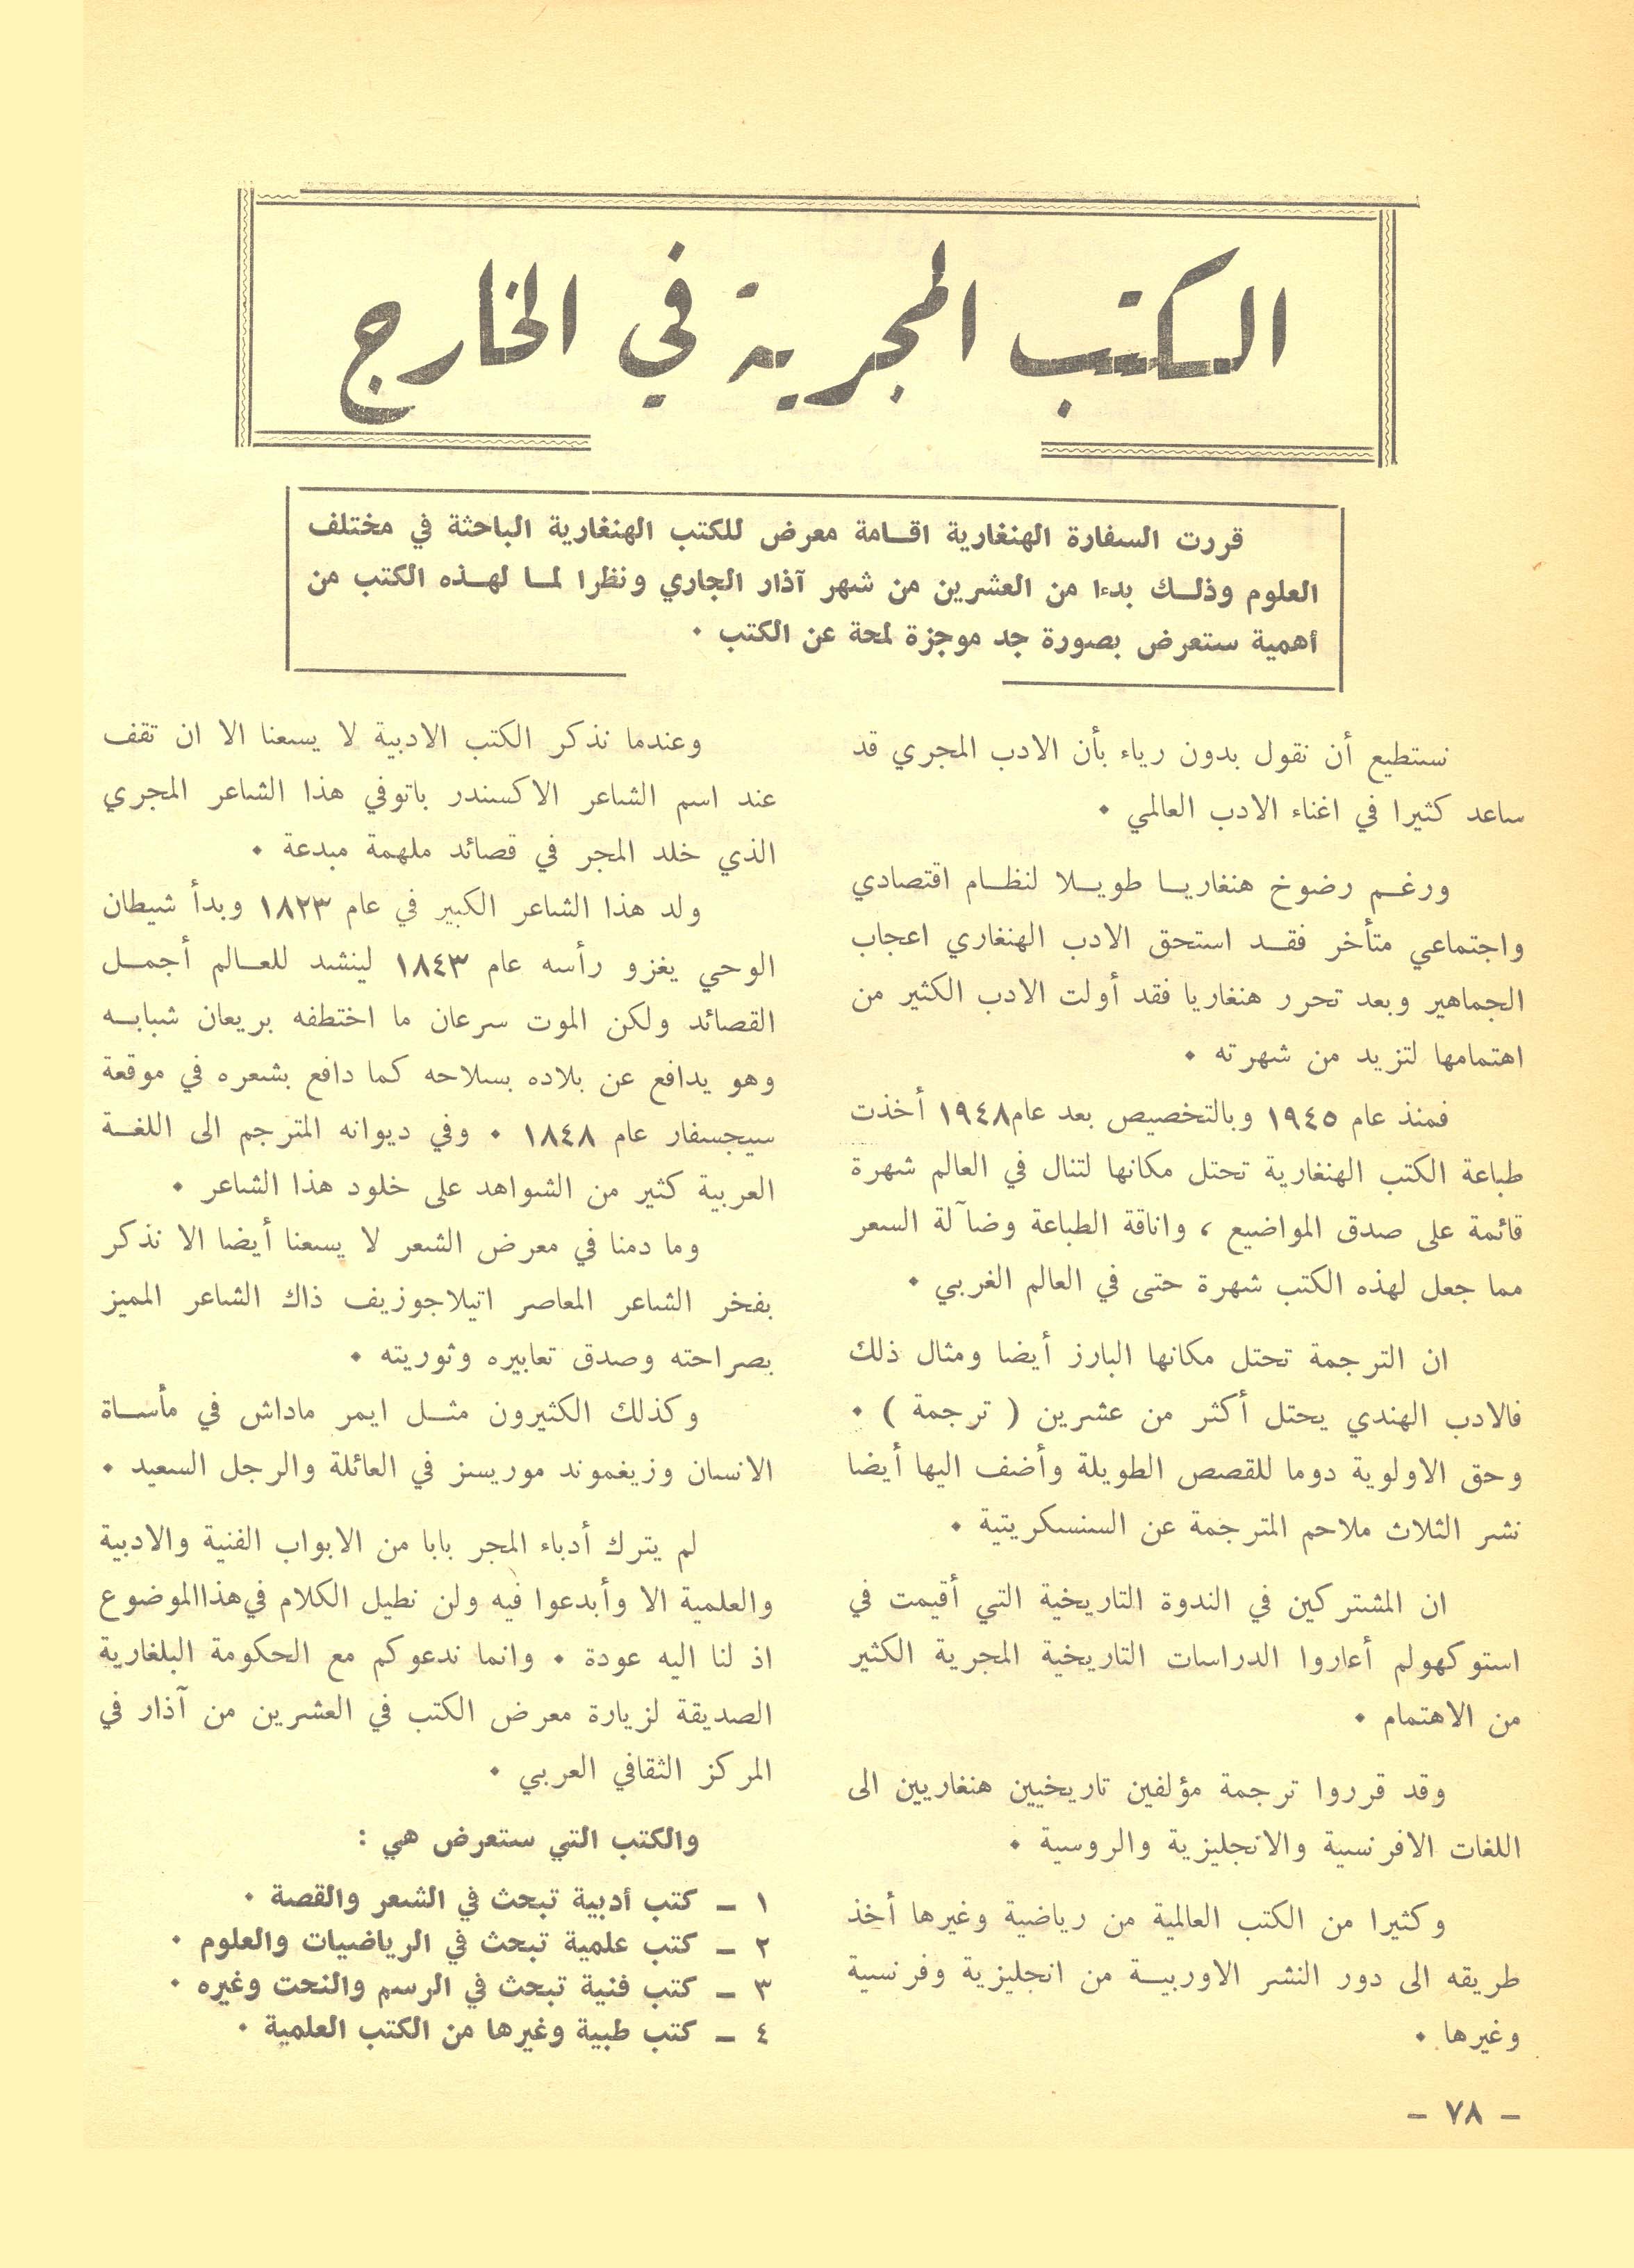 الكتب المجرية في الخارج
قررت السفارة الهنغارية اقـامة معرض للكتب الهنغارية الباحثة في مختلف
العلوم وذلـك بدءا من العشرين من شهر آذار الجاري ونظرا لمـا لهـذه الكتب من
أهمية ستعرض بصورة جد موجزة لمحة عن الكتب ٠
نستطيع أن نقول بدون رياء بأن الادب المجري قد
ساعد كثيرا في اغناء الادب العالمي ٠
ورغـم رضوخ هنغاريـا طويـلا لنظـام اقتصادي
واجتماعي متأخر فقـد استحق الادب الهنغاري اعجاب
الجماهير وبعد تحرر هنغاريا فقد أولت الادب الكثير من
اهتمامها لتزيد من شهرته ٠
فمنذ عام ١٩٤٥ وبالتخصيص بعد عام١٩٤٨ أخذت
طباعة الكتب الهنغارية تحتل مكانها لتنال في العالم شهرة
قائمة على صدق المواضيع ، واناقة الطباعة وضآلة السعر
مما جعل لهذه الكتب شهرة حتى في العالم الغربي ٠
ان الترجمة تحتل مكانها البارز أيضا ومثال ذلك
فالادب الهندي يحتل أكثر من عشرين ( ترجمة ) ٠
وحق الاولوية دوما للقصص الطويلة وأضف اليها أيضا
نشر الثلاث ملاحم المترجمة عن السنسكريتية ٠
ان المشتركين في الندوة التاريخية التي أقيمت في
استوكهولم أعاروا الدراسات التاريخية المجرية الكثير
من الاهتمام ٠
وقد قرروا ترجمة مؤلفين تاريخيين هنغاريين الى
اللغات الافرنسية والانجليزية والروسية ٠
وكثيرا من الكتب العالمية من رياضية وغيرها أخذ
طريقه الى دور النشر الاوربيـة من انجليزية وفرنسية
وغيرها ٠
وعندما نذكر الكتب الادبية لا يسعنا الا ان تقف
عند اسم الشاعر الاكسندر باتوفي هذا الشاعر المجري
الذي خلد المجر في قصائد ملهمة مبدعة ٠
ولد هذا الشاعر الكبير في عام ١٨٢٣ وبدأ شيطان
الوحي يغزو رأسه عام ١٨٤٣ لينشد للعـالم أجمـل
القصائد ولكن الموت سرعان ما اختطفه بريعان شبابـه
وهو يدافع عن بلاده بسلاحه كما دافع بشعره في موقعة
سيجسفار عام ١٨٤٨ ٠ وفي ديوانه المترجم الى اللغـة
العربية كثير من الشواهد على خلود هذا الشاعر ٠
وما دمنا في معرض الشعر لا يسعنا أيضا الا نذكر
بفخر الشاعر المعاصر اتيلاجوزيف ذاك الشاعر المميز
بصراحته وصدق تعابيره وثوريته ٠
وكذلك الكثيرون مثـل ايمر ماداش في مأسـاة
الانسان وزيغموند موريسز في العائلة والرجل السعيد ٠
لم يترك أدباء المجر بابا من الابواب الفنية والادبية
والعلمية الا وأبدعوا فيه ولن نطيل الكلام في هذاالموضوع
اذ لنا اليه عودة ٠ وانما ندعوكم مع الحكومة البلغارية
الصديقة لزيارة معرض الكتب في العشرين من آذار في
المركز الثقافي العربي ٠
والكتب التي ستعرض هي :
١ ـ كتب أدبية تبحث في الشعر والقصة ٠
٢ ـ كتب علمية تبحث في الرياضيات والعلوم ٠
٣ ـ كتب فنية تبحث في الرسم والنحت وغيره ٠
٤ ـ كتب طبية وغيرها من الكتب العلمية ٠
– ٧٨ –